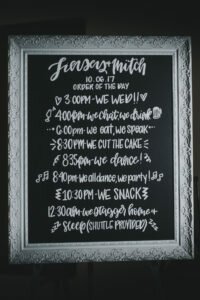 & Mitch
10.06.17
ORDER OF THE DAY
3:00PM-WE WED!!
4:00PM-we chat, we drink
6:00pm-we eat, we speak
8:30PM-WE CUT THE CAKE
8:35PM-we dance!
8:40PM-we all dance, we party!
10:30PM-WE SNACK
12:30am-we stagger home +
sleep (SHUTTLE PROVIDED)